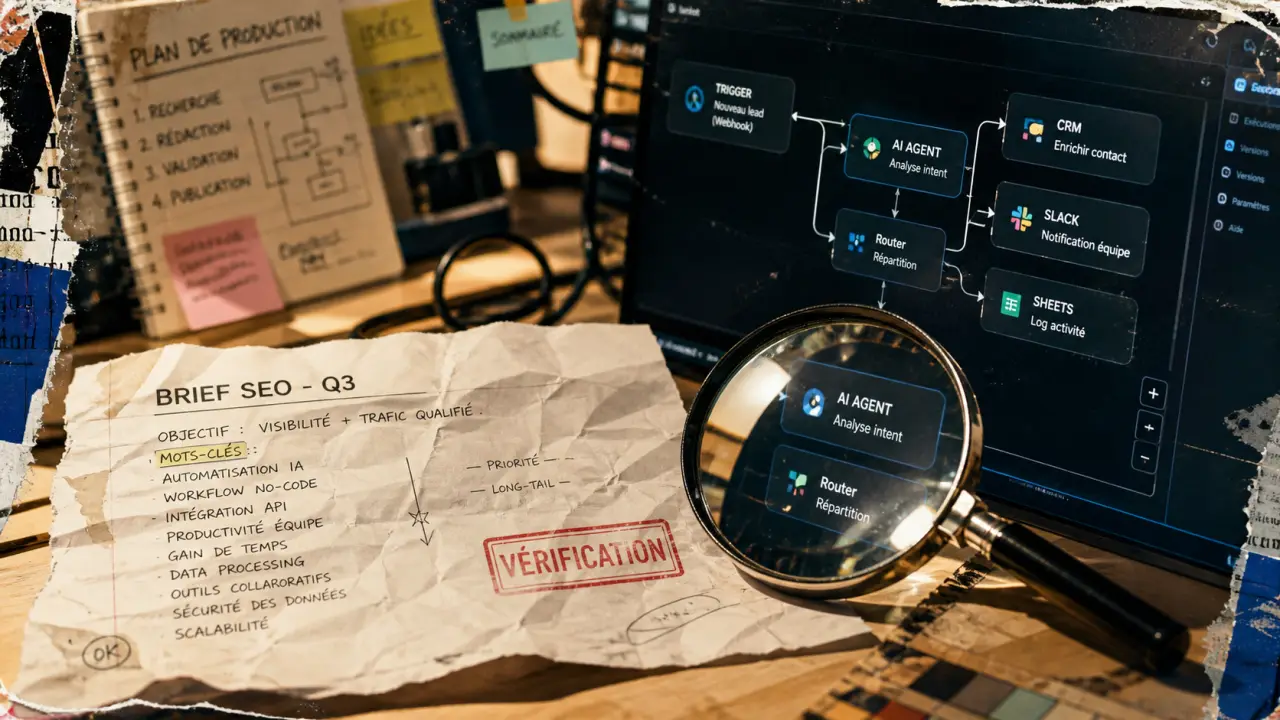 PLAN DE PRODUCTION
1. RECHERCHE
2. RÉDACTION
3. VALIDATION
4. PUBLICATION
IDÉES
SOMMAIRE
TRIGGER
Nouveau lead
(Webhook)
AI AGENT
Analyse intent
Router
Répartition
CRM
Enrichir contact
SLACK
Notification équipe
SHEETS
Log activité
Versions
Versions
Paramètres
Aide
+
+
−
AI AGENT
Analyse intent
Router
Répartition
BRIEF SEO - Q3
OBJECTIF : VISIBILITÉ + TRAFIC QUALIFIÉ .
. MOTS-CLÉS ::
· AUTOMATISATION IA
· WORKFLOW NO-CODE
· INTÉGRATION API
· PRODUCTIVITÉ ÉQUIPE
· GAIN DE TEMPS
· DATA PROCESSING
· OUTILS COLLAORATIFS
· SÉCURITÉ DES DONNÉES
· SCALABILITÉ
— PRIORITÉ — –
— LONG-TAIL —
VÉRIFICATION
OK